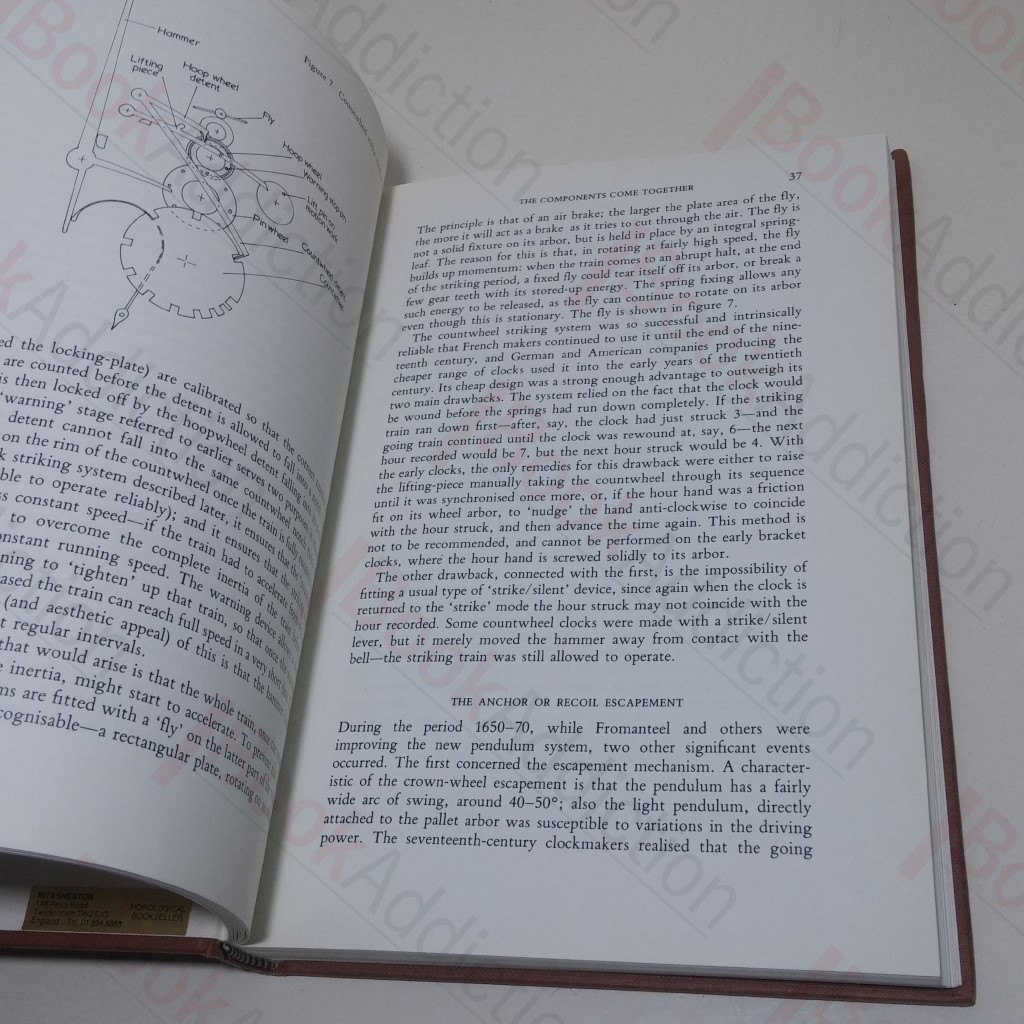 Hammer
Figure 7
Lifting
piece
Hoop wheel
detent
Fly
Hoop wheel
Warning stop pin
Lift pin in
motion work
Pin wheel
Countwheel
ed the locking-plate) are calibrated so that the
are counted before the detent is allowed to fall into
is then locked off by the hoopwheel detent falling into
'warning' stage referred to earlier serves two purposes
detent cannot fall into the same countwheel
on the rim of the countwheel once the train is
k striking system described later, it ensures that the
ble to operate reliably); and it ensures that the
ss constant speed—if the train had to accelerate
to overcome the complete inertia of the train
nstant running speed. The warning device allows
ning to 'tighten' up that train, so that once the
ased the train can reach full speed in a very short
(and aesthetic appeal) of this is that the hammer
t regular intervals.
that would arise is that the whole train, once
e inertia, might start to accelerate. To prevent this
ms are fitted with a 'fly' on the latter part of
cognisable—a rectangular plate, rotating on
RITA SHENTON
Twickenham TW2
England Tel. 01 894 6888
HOROLOGICAL
BOOKSELLER
THE COMPONENTS COME TOGETHER 37
The principle is that of an air brake; the larger the plate area of the fly,
the more it will act as a brake as it tries to cut through the air. The fly is
not a solid fixture on its arbor, but is held in place by an integral spring-
leaf. The reason for this is that, in rotating at fairly high speed, the fly
builds up momentum: when the train comes to an abrupt halt, at the end
of the striking period, a fixed fly could tear itself off its arbor, or break a
few gear teeth with its stored-up energy. The spring fixing allows any
such energy to be released, as the fly can continue to rotate on its arbor
even though this is stationary. The fly is shown in figure 7.
The countwheel striking system was so successful and intrinsically
reliable that French makers continued to use it until the end of the nine-
teenth century, and German and American companies producing the
cheaper range of clocks used it into the early years of the twentieth
century. Its cheap design was a strong enough advantage to outweigh its
two main drawbacks. The system relied on the fact that the clock would
be wound before the springs had run down completely. If the striking
train ran down first—after, say, the clock had just struck 3—and the
going train continued until the clock was rewound at, say, 6—the next
hour recorded would be 7, but the next hour struck would be 4. With
the early clocks, the only remedies for this drawback were either to raise
the lifting-piece manually taking the countwheel through its sequence
until it was synchronised once more, or, if the hour hand was a friction
fit on its wheel arbor, to 'nudge' the hand anti-clockwise to coincide
with the hour struck, and then advance the time again. This method is
not to be recommended, and cannot be performed on the early bracket
clocks, where the hour hand is screwed solidly to its arbor.
The other drawback, connected with the first, is the impossibility of
fitting a usual type of 'strike/silent' device, since again when the clock is
returned to the 'strike' mode the hour struck may not coincide with the
hour recorded. Some countwheel clocks were made with a strike/silent
lever, but it merely moved the hammer away from contact with the
bell—the striking train was still allowed to operate.
THE ANCHOR OR RECOIL ESCAPEMENT
During the period 1650–70, while Fromanteel and others were
improving the new pendulum system, two other significant events
occurred. The first concerned the escapement mechanism. A character-
istic of the crown-wheel escapement is that the pendulum has a fairly
wide arc of swing, around 40–50°; also the light pendulum, directly
attached to the pallet arbor was susceptible to variations in the driving
power. The seventeenth-century clockmakers realised that the going